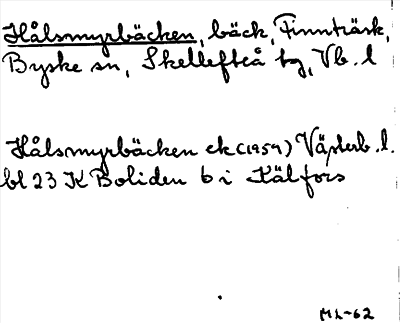 Hålsmyrbäcken, bäck, Finnträsk,
Byske sn, Skellefteå tg, Vb. l
Hålsmyrbäcken ek (1959) Västerb. l.
bl 23 K Boliden 6 i Källfors
ML-62